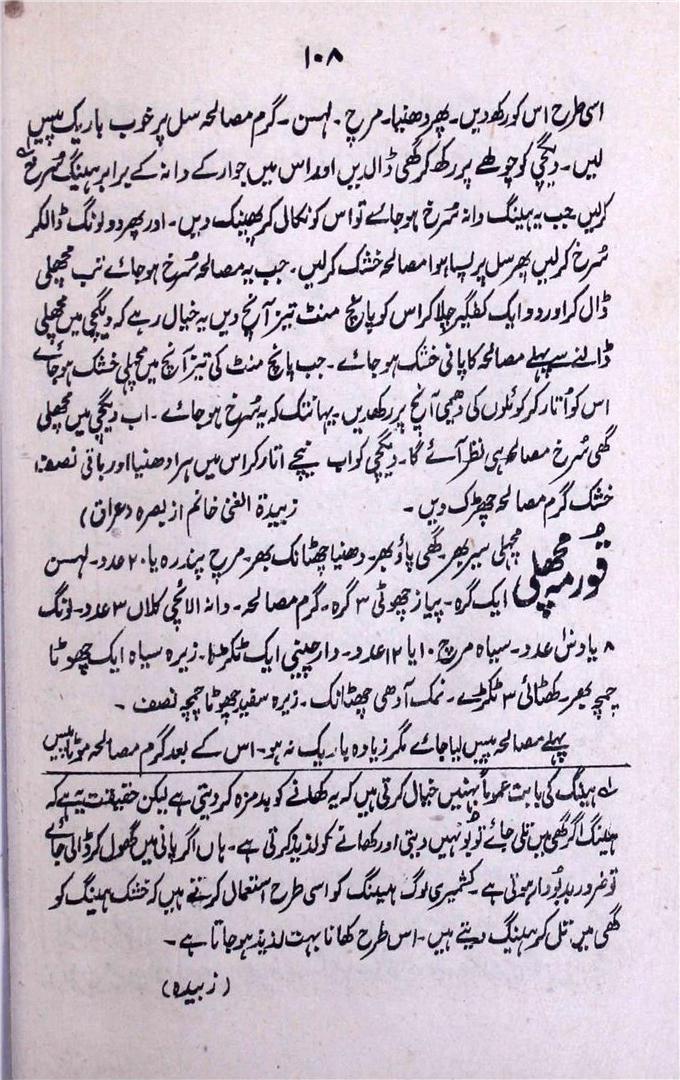 ۱۰۸
اسی طرح اس کو رکھ دیں۔ پھر دھنیا۔ مرچ۔ لہسن۔ گرم مصالحہ سل پر خوب باریک پیس
لیں۔ دیگچی کو چولھے پر رکھ کر گھی ڈالدیں اور اس میں جوار کے دانہ کے برابر ہینگ سُرخ
کرلیں جب یہ ہینگ دانہ سُرخ ہو جائے تو اس کو نکال کر پھینک دیں۔ اور پھر دو لونگ ڈالکر
سُرخ کرلیں پھر سل پر پسا ہوا مصالحہ خشک کرلیں۔ جب یہ مصالحہ سُرخ ہو جائے تب مچھلی
ڈال کر اور دو ایک کفگیر چلا کر اس کو پانچ منٹ تیز آنچ دیں یہ خیال رہے کہ دیگچی میں مچھلی
ڈالنے سے پہلے مصالحہ کا پانی خشک ہو جائے۔ جب پانچ منٹ کی تیز آنچ میں مچھلی خشک ہو جائے
اس کو اُتار کر کوئلوں کی دھیمی آنچ پر رکھدیں۔ یہانتک کہ یہ سُرخ ہو جائے۔ اب دیگچی میں مچھلی
گھی سُرخ مصالحہ ہی نظر آئے گا۔ دیگچی کو اب نیچے اتار کر اس میں ہرا دھنیا اور باقی نصف
خشک گرم مصالحہ چھڑک دیں۔ زبیدۃ الغنی خانم از بصرہ (عراق)
قورمہ مچھلی مچھلی سیر بھر۔ گھی پاؤ بھر۔ دھنیا چھٹانک بھر۔ مرچ پندرہ یا ۲۰ عدد۔ لہسن
ایک گرہ۔ پیاز چھوٹی ۳ گرہ۔ گرم مصالحہ۔ دانہ الائچی کلاں ۳ عدد۔ لونگ
۸ یا دس عدد۔ سیاہ مرچ ۱۰ یا ۱۲ عدد۔ دارچینی ایک ٹکڑا۔ زیرہ سیاہ ایک چھوٹا
چمچہ بھر۔ کھٹائی ۳ ٹکڑے۔ نمک آدھی چھٹانک۔ زیرہ سفید چھوٹا چمچہ نصف۔
پہلے مصالحہ پیس لیا جائے مگر زیادہ باریک نہ ہو۔ اس کے بعد گرم مصالحہ موٹا پیس
لہ ہینگ کی بابت عموماً بہنیں خیال کرتی ہیں کہ یہ کھانے کو بدمزہ کر دیتی ہے لیکن حقیقت یہ ہے کہ
ہینگ اگر گھی میں تلی جائے تو بُو نہیں دیتی اور کھانے کو لذیذ کرتی ہے۔ ہاں اگر پانی میں گھول کر ڈالی جائے
تو ضرور بدبُودار ہوتی ہے۔ کشمیری لوگ ہینگ کو اسی طرح استعمال کرتے ہیں کہ خشک ہینگ کو
گھی میں تل کر ہینگ دیتے ہیں۔ اس طرح کھانا بہت لذیذ ہو جاتا ہے۔
(زبیدہ)